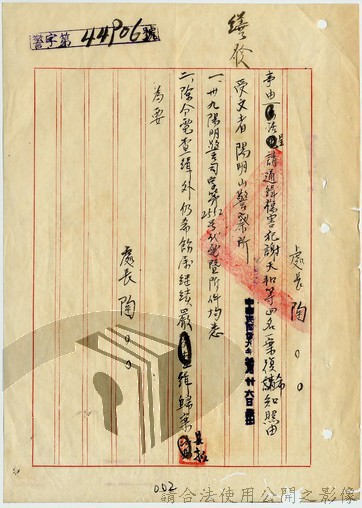 警字第44906號
繕發
處長陶〇〇
事由
請通緝傷害犯謝天和等四名一案復希知照由
受文者 陽明山警察所
一、卅九陽明警司字第2512號代電暨附件均悉
二、除令電查緝外仍希飭屬繼續嚴緝歸案
為要
處長陶〇〇
002
請合法使用公開之影像